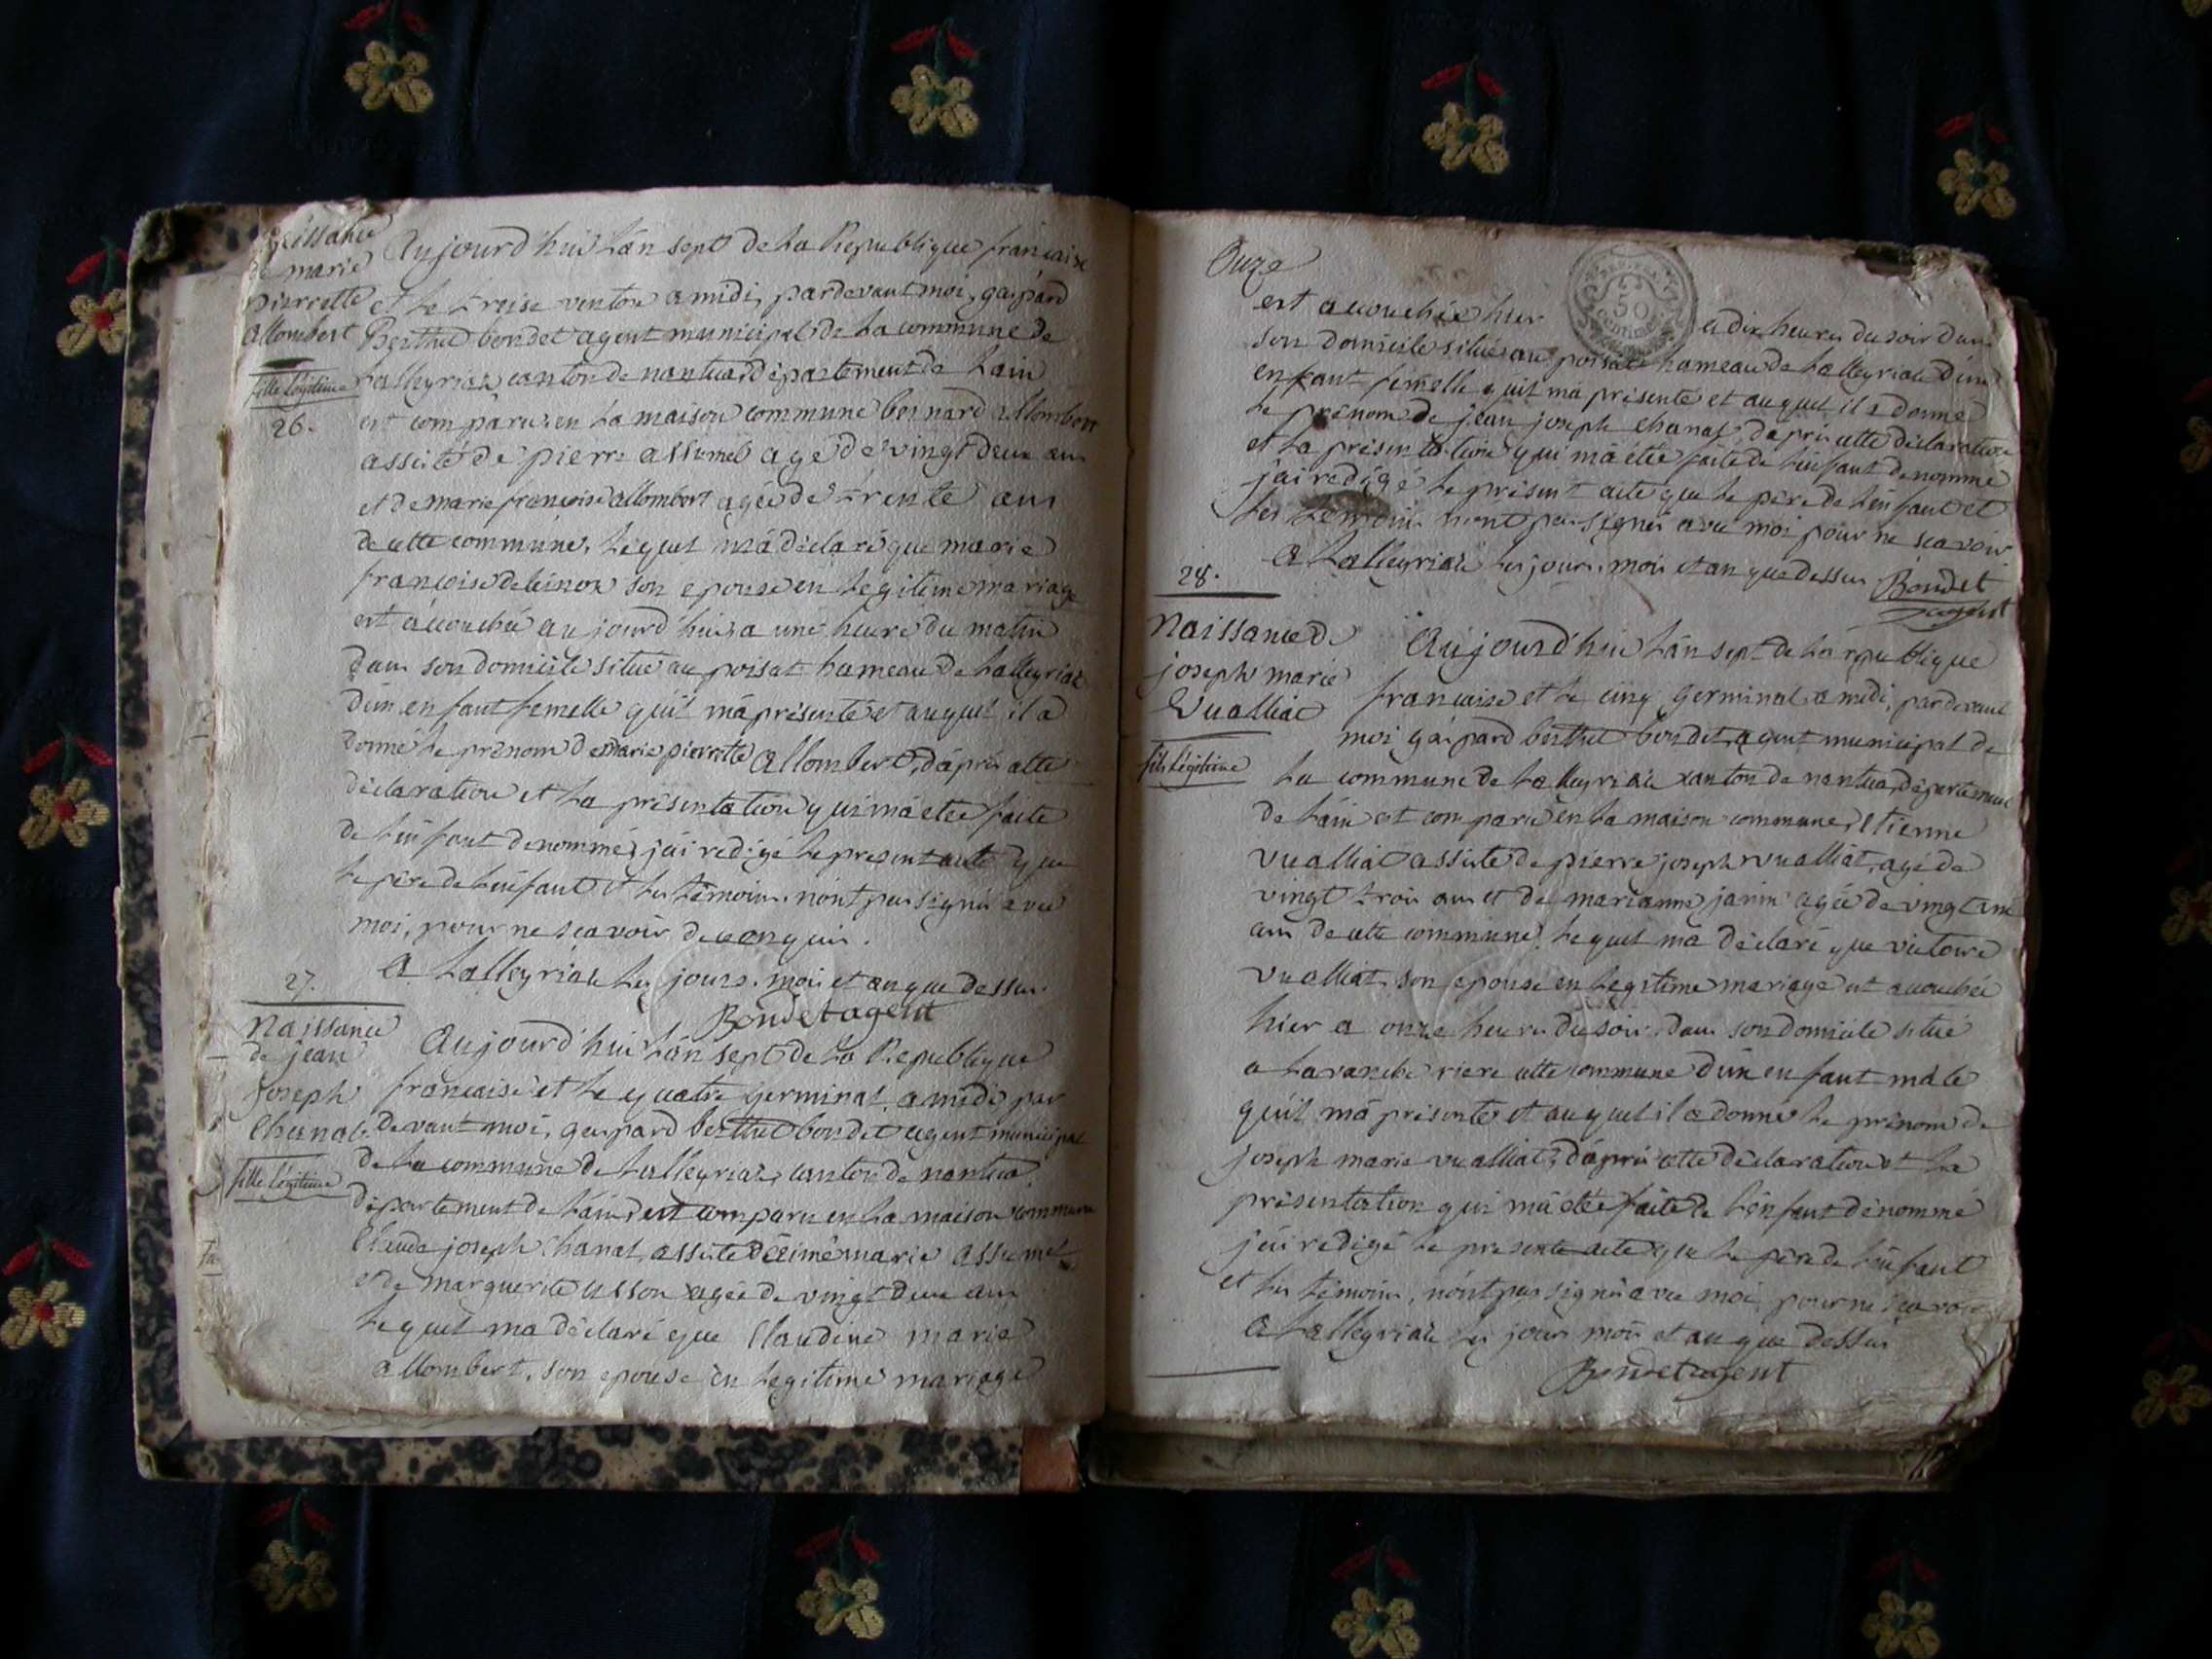 Naissance
de marie
pierrette
allombert
fille légitime
26.
Aujourd'hui L'an sept de La Republique française
et Le treise ventôse a midi, pardevant moi, gaspard
Berthet bondet agent municipal de La commune de
Lalleyriat canton de nantua, département de L'ain
est comparu en La maison commune bernard allombert
assisté de pierre assumel agé de vingt deux ans
et de marie françoise allombert agée de trente ans
de cette commune, Lequel m'a déclaré que marie
françoise son epouse en Legitime mariage
est accouchée aujourd'hui a une heure du matin
dans son domicile situé au poisat hameau de Lalleyriat
d'un enfant femelle qu'il m'a présenté et auquel il a
donné Le prenom de marie pierrette allombert, d'après cette
déclaration et La présentation qui m'a etée faite
de L'enfant denommé, j'ai redigé Le present acte que
Le père de L'enfant et Les témoins n'ont pas signé avec
moi, pour ne scavoir de ce enquis.
A Lalleyriat Les jours, mois et an que dessus.
Bondet agent
27.
Naissance
de jean
joseph
Chanal
fille légitime
Aujourd'hui L'an sept de La Republique
française et Le quatre germinal a midi par
devant moi, gaspard berthet bondet agent municipal
de La commune de Lalleyriat, canton de nantua,
département de L'ain, est comparu en La maison commune
Claude joseph Chanal, assisté d'aimé marie assumel
et de marguerite usson agée de vingt deux ans
Lequel m'a déclaré que Claudine marie
allombert, son epouse en Legitime mariage
Onze
50
centimes
est accouchée hier a dix heures du soir dans
son domicile situé au poisat hameau de Lalleyriat d'un
enfant femelle qu'il m'a présenté et auquel il a donné
Le prenom de jean joseph chanal, d'après cette déclaration
et La présentation qui m'a étée faite de L'enfant denommé
j'ai redigé Le présent acte que Le père de L'enfant et
Les témoins n'ont pas signés avec moi pour ne scavoir
A Lalleyriat Les jours, mois et an que dessus Bondet
agent
28.
Naissance de
joseph marie
Vualliat
fils légitime
Aujourd'hui L'an sept de La republique
française et Le cinq germinal a midi, pardevant
moi gaspard berthet bondet, agent municipal de
La commune de Lalleyriat canton de nantua, departement
de L'ain est comparu en La maison commune, Etienne
vualliat assisté de pierre joseph vualliat, agé de
vingt trois ans et de marianne janin agée de vingt
ans de cette commune, Lequel m'a déclaré que victoire
vualliat, son epouse en Legitime mariage est accouchée
hier a onze heures du soir dans son domicile situé
a rière cette commune d'un enfant mâle
qu'il m'a présenté et auquel il a donné Le prénom de
joseph marie vualliat, d'après cette déclaration et La
présentation qui m'a étée faite de L'enfant dénommé
j'ai redigé Le present acte que Le père de L'enfant
et Les témoins, n'ont pas signé avec moi pour ne scavoir
A Lalleyriat Les jours mois et an que dessus
Bondet agent